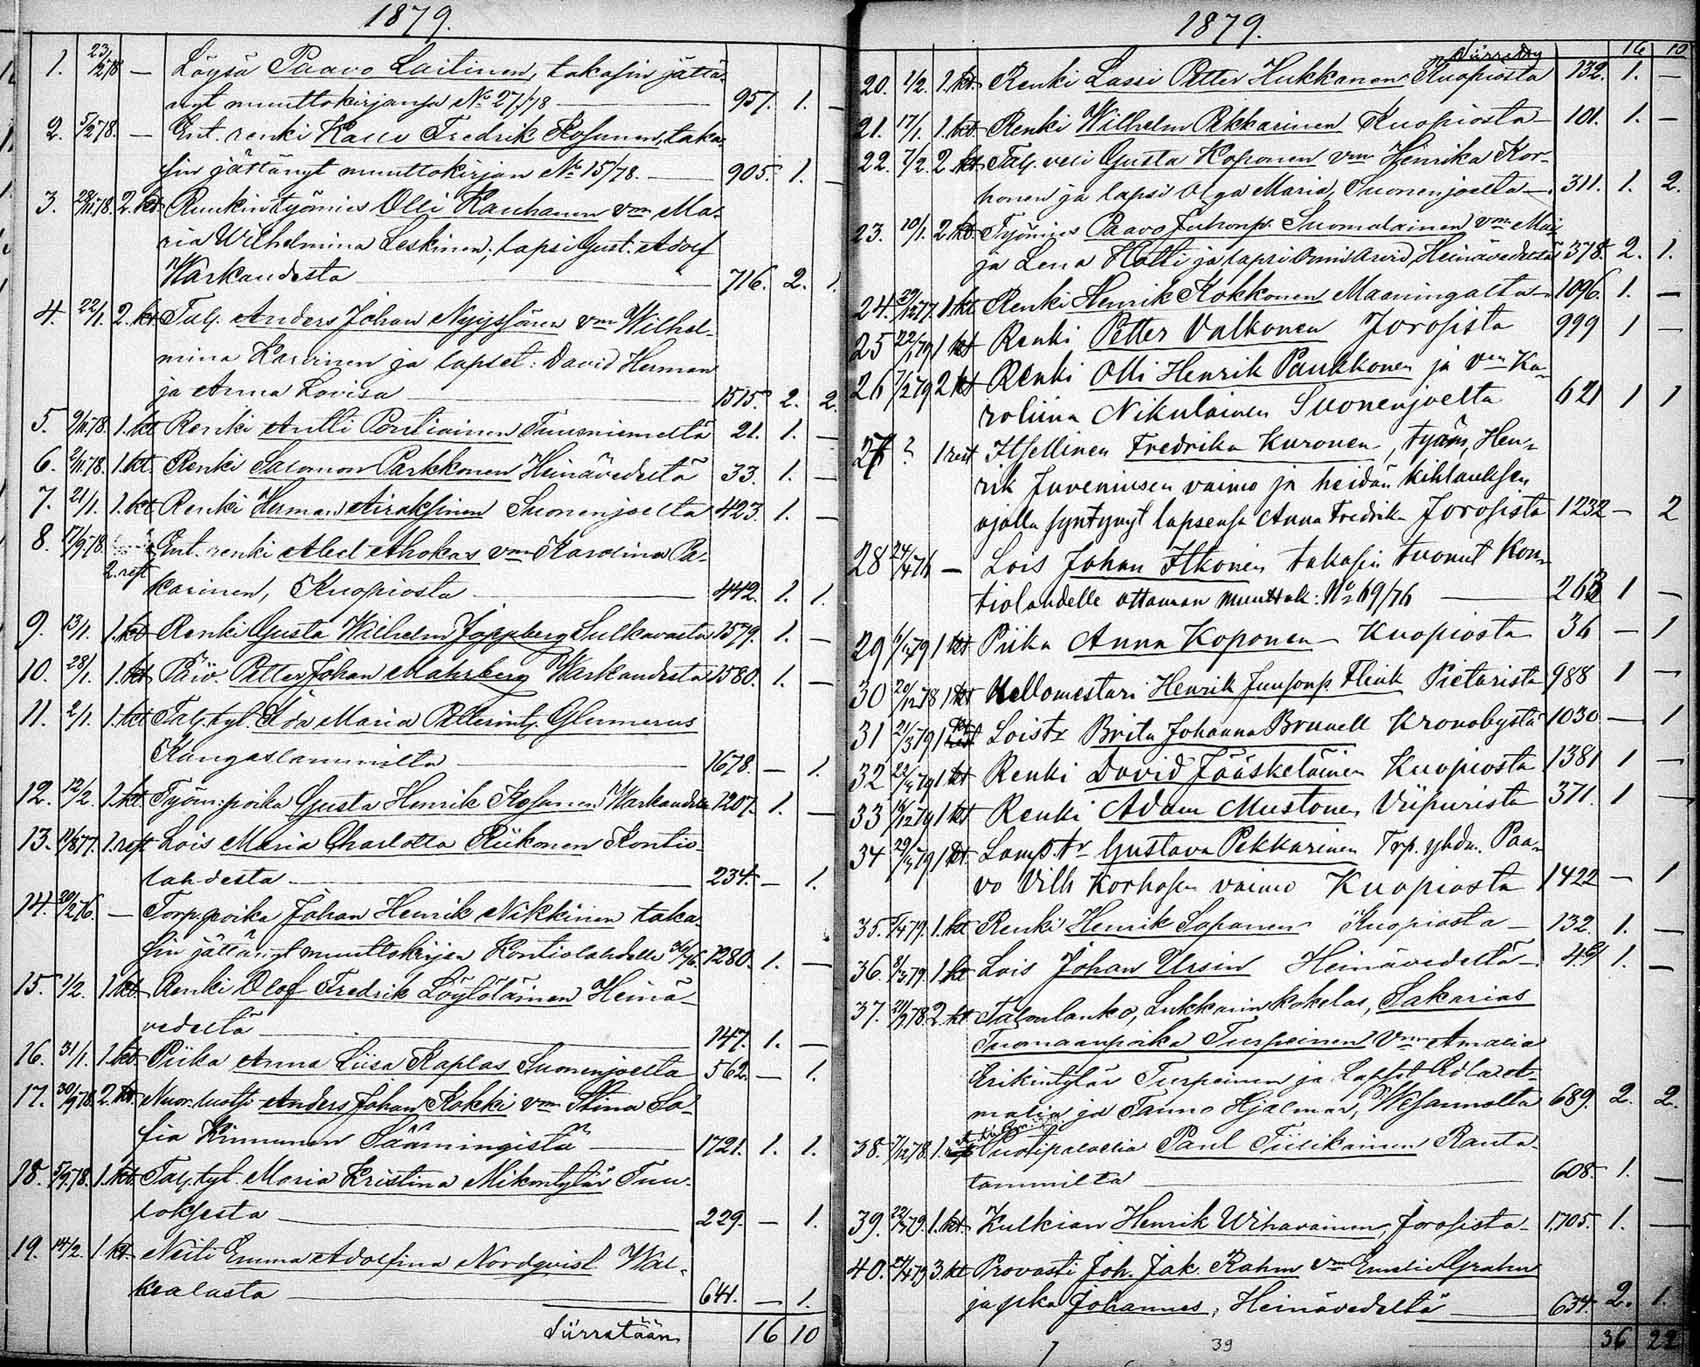 1879.
1. 23/2 78 — Löysä Paavo Laitinen, takasin jättä-
nyt muuttokirjansa No 27/78 — 957. 1. —
2. 5/2 78. — Ent. renki Kalle Fredrik Kosunen, taka-
sin jättänyt muuttokirjan No 15/78. — 905. 1. —
3. 2. kt Ruukintyömies Olli Kauhanen vmo Ma-
ria Wilhelmina Leskinen, lapsi Gust. Adolf
Warkaudesta — 716. 2. 1.
4. 22/1. 2. kt Talj. Anders Johan Nyyssönen vmo Wilhel-
mina Karvinen ja lapset: David Herman
ja Anna Lovisa — 1515. 2. 2.
5. 1. kt Renki Antti Pentiäinen Tuusniemeltä 21. 1. —
6. 1. kt. Renki Salomon Parkkonen Heinävedeltä 33. 1. —
7. 21/1. 1. kt Renki Herman Airaksinen Suonenjoelta 423. 1. —
8. 17/9 78. 2. rest Ent. renki Abel Ahokas vmo Karolina Pa-
karinen, Kuopiosta — 442. 1. 1.
9. 13/1. 1. kt Renki Gusta Wilhelm Sulkavasta 1579. 1. —
10. 28/1. 1. kt Päiv. Petter Johan Mahrberg Warkaudesta 1580. 1. —
11. 2/1. 1. kt Talj. tyl. Ada Maria Petterint. Glumerus
Kangaslammilta — 1678. — 1.
12. 12/2. 1. kt. Työm: poika Gusta Henrik Kosunen Warkaudesta 1207. 1. —
13. 1. rest Lois Maria Charlotta Riikonen Kontio-
lahdesta — 234. — 1.
14. 20/2 76. — Torp. poika Johan Henrik Nikkinen taka-
sin jättänyt muuttokirjan Kontiolahdelle 1280. 1. —
15. 1/2. 1. kt. Renki Olof Fredrik Löylöläinen Heinä-
vedeltä — 147. 1. —
16. 31/1. 1. kt. Piika Anna Liisa Kaplas Suonenjoelta 562. — 1.
17. 2. kt. Nuor. Anders Johan Kokki vmo Stina So-
fia Kinnunen Säämingistä — 1721. 1. 1.
18. 5/9 78. 1. kt. Talj. tyl. Maria Kristina Mikontytär Tuu-
loksesta — 229. — 1.
19. 14/2. 1. kt. Neiti Emma Adolfina Nordqvist Wal-
kealasta — 644. — 1.
Siirretään 16 10
1879.
Siirretty 16 10
20. 1/2. 1. kt. Renki Lassi Petter Hukkanen Kuopiosta 132. 1. —
21. 17/1. 1. kt Renki Wilhelm Pekkarinen Kuopiosta — 101. 1. —
22. 7/2. 2. kt. Talj. veli Gusta Koponen vmo Henrika Kor-
honen ja lapsi Olga Maria, Suonenjoelta — 311. 1. 2.
23. 10/1. 2. kt. Työmies Paavo Juhonp. Suomalainen vmo Mai-
ja Lena Hätti ja lapsi Onni Arvid, Heinävedeltä 378. 2. 1.
24. 1. kt Renki Henrik Kokkonen Maaningalta — 1096. 1. —
25 22/1 79 1 kt Renki Petter Valkonen Joroisista 999 1 —
26 7/2 79 2 kt Renki Olli Henrik Paukkonen ja vmo Ka-
roliina Nikulainen Suonenjoelta 621 1 1
27 ? 1 rest Itsellinen Fredrika Kuronen, työm, Hen-
rik Juveniusen vaimo ja heidän kihlauksen
ajalla syntynyt lapsensa Anna Fredrika Joroisista 1232 — 2
28 — Lois Johan Itkonen takasin tuonut Kon-
tiolahdelle ottaman muuttok. No 69/76 — 263 1 —
29 1 kt Piika Anna Koponen — Kuopiosta 36 — 1
30 20/12 78 1 kt Kellomestari Henrik Juusonp. Flink Pietarista 988 1 —
31 21/3 79 1 Loistr Brita Johanna Brunell Kronobystä 1030 — 1
32 1 kt Renki David Jääskeläinen Kuopiosta 1381 1 —
33 1 kt Renki Adam Mustonen Viipurista 371. 1 —
34 1 kt. Lamp. tr Gustava Pekkarinen Trp. yhdm. Paa-
vo Vilh Korhosen vaimo Kuopiosta 1422 — 1
35. 1. kt Renki Henrik Sapanen Kuopiosta — 132. 1. —
36. 1 kt Lois Johan Ursin Heinävedeltä — 1. —
37. 2. kt Talonlanko, Lukkarin kokelas, Sakarias
Tuomaanpoika Turpeinen vmo Amalia
Erikintytär Turpeinen ja Lapset
ja Tauno Hjalmar, Wesannolta 689. 2. 2.
38. 1. Paul Tiilikainen Ranta-
salmilta — 608. 1. —
39. 1. kt. Kulkian Henrik Wihavainen, Joroisista — 1705. 1. —
40. 3. kt Provasti Joh. Jak. Rahm vmo Emelie Grahn
ja pka Johannes, Heinävedeltä — 634. 2. 1.
36 22
7 39